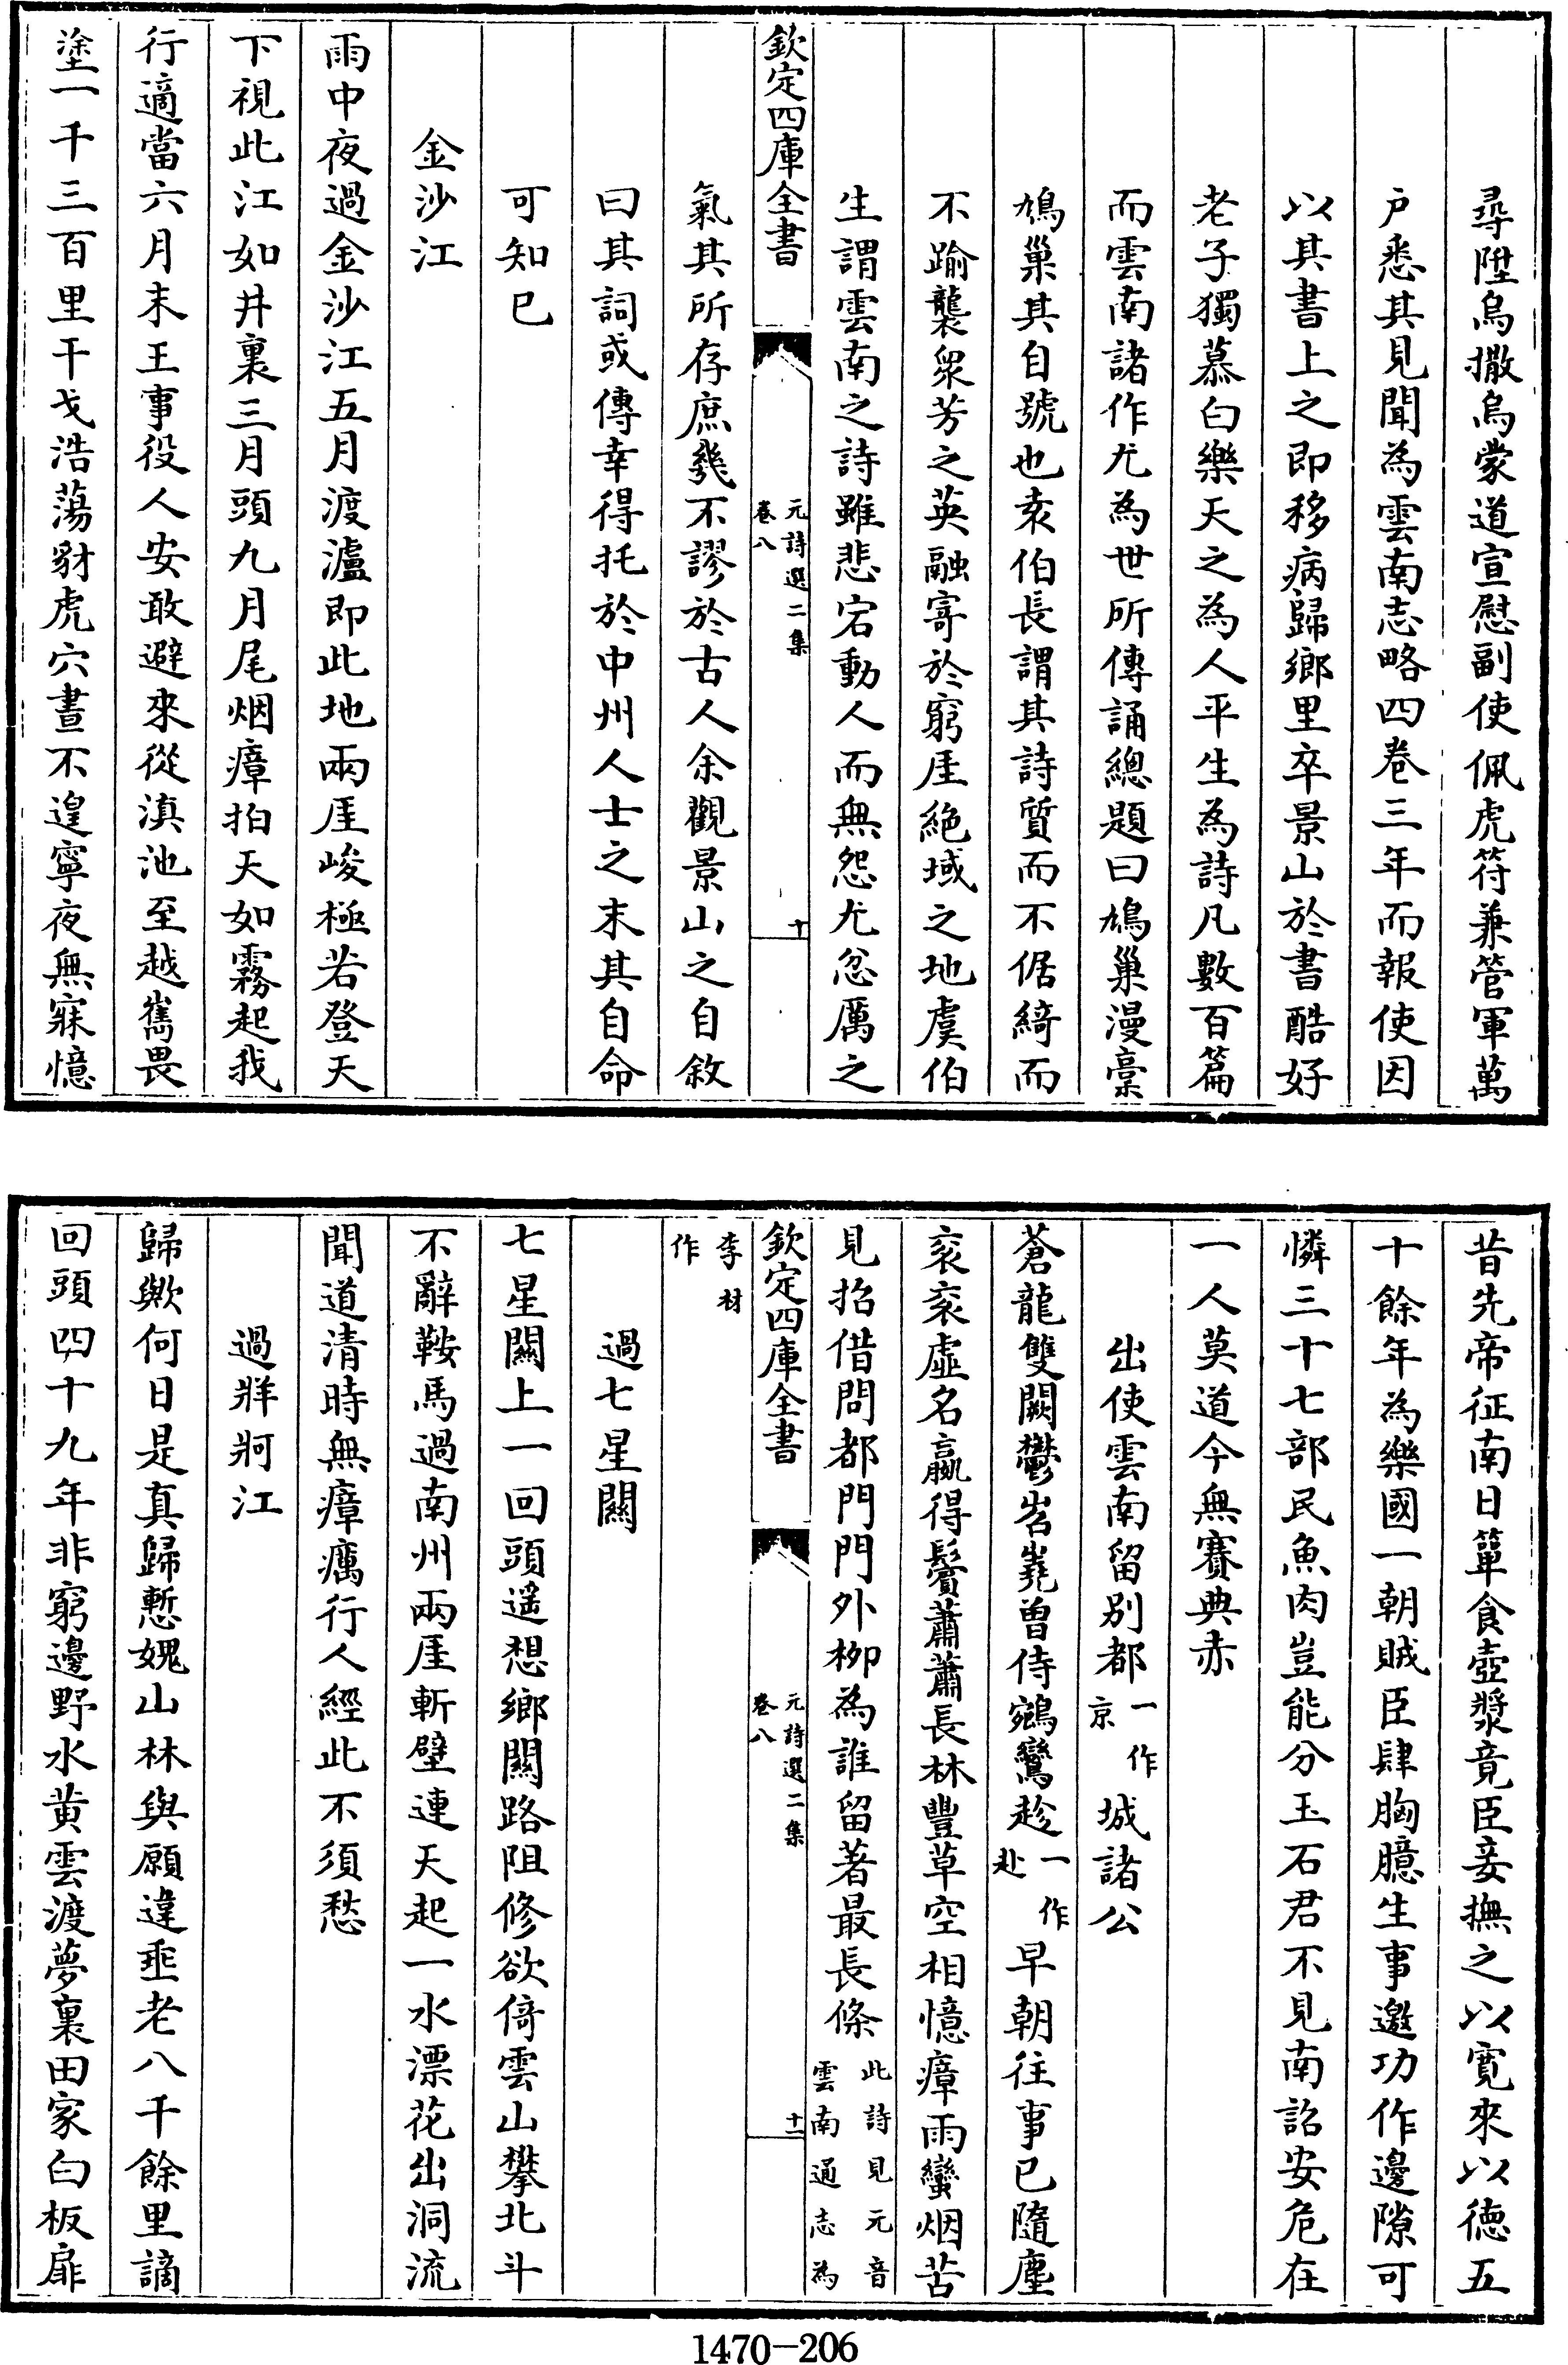 尋陞烏撒烏蒙道宣慰副使佩虎符兼管軍萬
户悉其見聞為雲南志略四卷三年而報使因
以其書上之即移病歸鄉里卒景山於書酷好
老子獨慕白樂天之為人平生為詩凡數百篇
而雲南諸作尤為世所傳誦總題曰鳩巢漫稾
鳩巢其自號也袁伯長謂其詩質而不倨綺而
不踰襲衆芳之英融寄於窮厓絶域之地虞伯
生謂雲南之詩雖悲宕動人而無怨尤忿厲之
欽定四庫全書
元詩選二集
卷八
十
氣其所存庶幾不謬於古人余觀景山之自敘
曰其詞或傳幸得托於中州人士之末其自命
可知已
金沙江
雨中夜過金沙江五月渡瀘即此地兩厓峻極若登天
下視此江如井裏三月頭九月尾烟瘴拍天如霧起我
行適當六月末王事役人安敢避來從滇池至越巂畏
塗一千三百里干戈浩蕩豺虎穴晝不遑寧夜無寐憶
昔先帝征南日簞食壺漿竟臣妾撫之以寛來以德五
十餘年為樂國一朝賊臣肆胸臆生事邀功作邊隙可
憐三十七部民魚肉豈能分玉石君不見南詔安危在
一人莫道今無賽典赤
出使雲南留别都一作京城諸公
蒼龍雙闕鬱岧嶤曾侍鵷鸞趁一作赴早朝往事已隨塵
衮衮虛名贏得鬢蕭蕭長林豐草空相憶瘴雨蠻烟苦
見招借問都門門外栁為誰留著最長條此詩見元音
雲南通志為
欽定四庫全書
元詩選二集
卷八
十一
李材
作
過七星關
七星關上一回頭遥想鄉關路阻修欲倚雲山攀北斗
不辭鞍馬過南州兩厓斬壁連天起一水漂花出洞流
聞道清時無瘴癘行人經此不須愁
過牂牁江
歸歟何日是真歸慙媿山林與願違垂老八千餘里謫
回頭四十九年非窮邊野水黄雲渡夢裏田家白板扉
1470-206